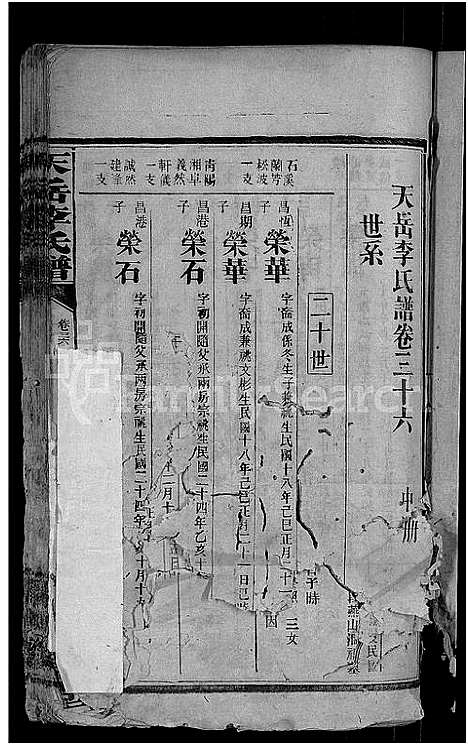 天岳李氏譜卷三十六
世系
二十世
石溪
蘭芳
松波
一支
昌恆
子
榮華
字喬成係冬生子兼祧生民國十八年己巳正月二十一
昌期
子
榮華
字喬成兼祧文彬生民國十八年己巳正月二十一日巳時
三女
南陽
湘卓
義然
軒儀
一支
昌港
子
榮石
字初開隨父承兩房宗祧生民國二十四年乙亥十
誠然
建章
一支
昌港
子
榮石
字初開隨父承兩房宗祧生民國二十四年
十月十
天岳李氏譜
卷三六
FamilySearch